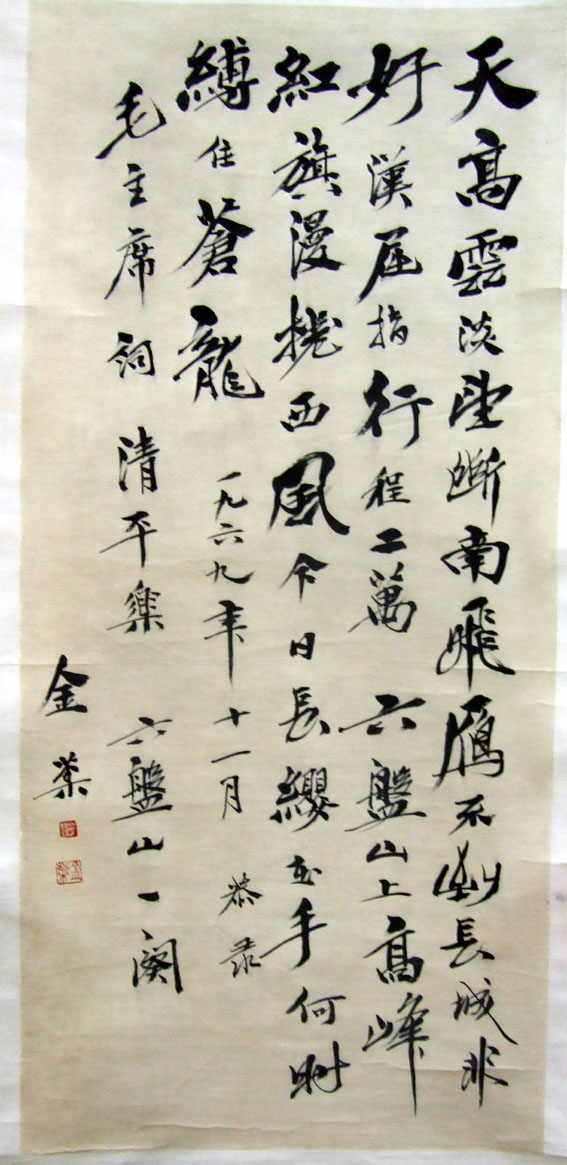 天高雲淡望斷南飛鴈不到長城非
好漢屈指行程二萬六盤山上高峰
紅旗漫捲西風今日長纓在手何時
縛住蒼龍 一九六九年十一月 恭录
毛主席詞 清平樂 六盤山一闋
金葉